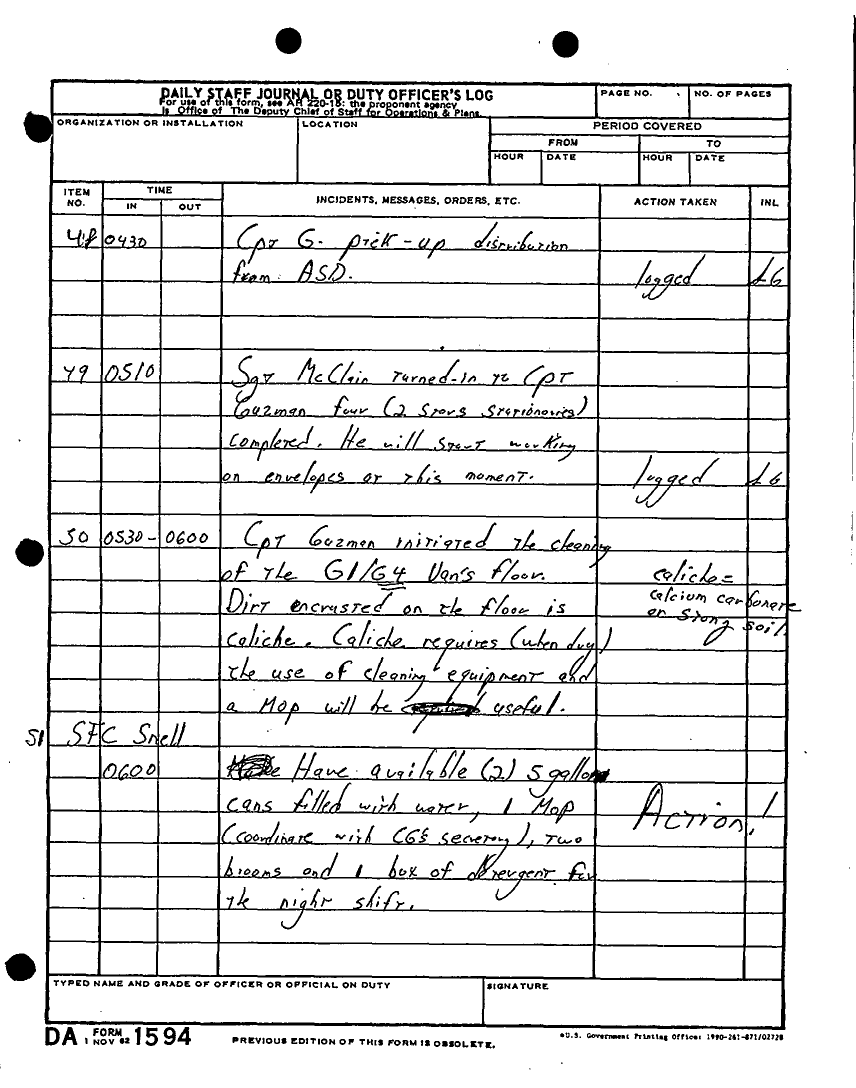 DAILY STAFF JOURNAL OR DUTY OFFICER'S LOG
For use of this form, see AR 220-15: the proponent agency
is Office of The Deputy Chief of Staff for Operations & Plans.
PAGE NO.
NO. OF PAGES
ORGANIZATION OR INSTALLATION
LOCATION
PERIOD COVERED
FROM
TO
HOUR
DATE
HOUR
DATE
ITEM NO.
TIME
IN
OUT
INCIDENTS, MESSAGES, ORDERS, ETC.
ACTION TAKEN
INL
48 0430 Cpt G. pick-up distribution
from ASD. logged LG
49 0510 Sgt McClain turned-in to Cpt
Guzman four (2 stationaries)
completed. He will start working
on envelopes at this moment. logged LG
50 0530-0600 Cpt Guzman initiated the cleaning
of the G1/G4 Van's floor. caliche =
Dirt encrusted on the floor is calcium carbonate
caliche. Caliche requires (when dry) or stong soil.
the use of cleaning equipment and
a Mop will be useful.
51 SFC Snell
0600 Have available (2) 5 gallon
cans filled with water, 1 Mop Action!
(coordinate with CG's secretary), two
brooms and 1 box of detergent for
the night shift.
TYPED NAME AND GRADE OF OFFICER OR OFFICIAL ON DUTY
SIGNATURE
DA FORM 1 NOV 62 1594
PREVIOUS EDITION OF THIS FORM IS OBSOLETE.
*U.S. Government Printing Office: 1990-261-871/02728